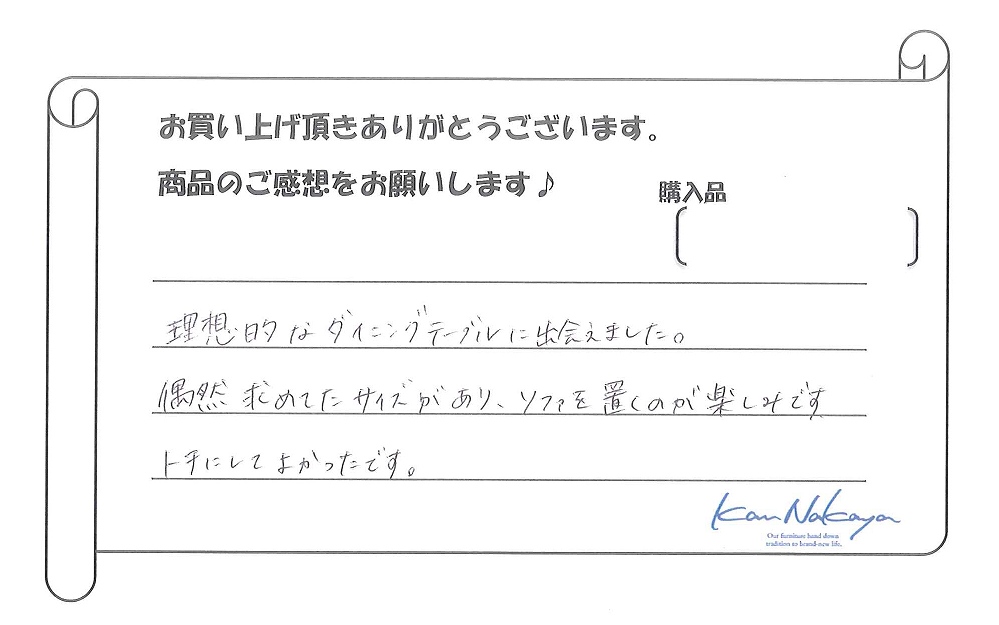 お買い上げ頂きありがとうございます。
商品のご感想をお願いします♪
購入品
理想的なダイニングテーブルに出会えました。
偶然求めてたサイズがあり、ソファを置くのが楽しみです
トチにしてよかったです。
Kan Nakaya
Our furniture hand down
tradition to brand-new life.